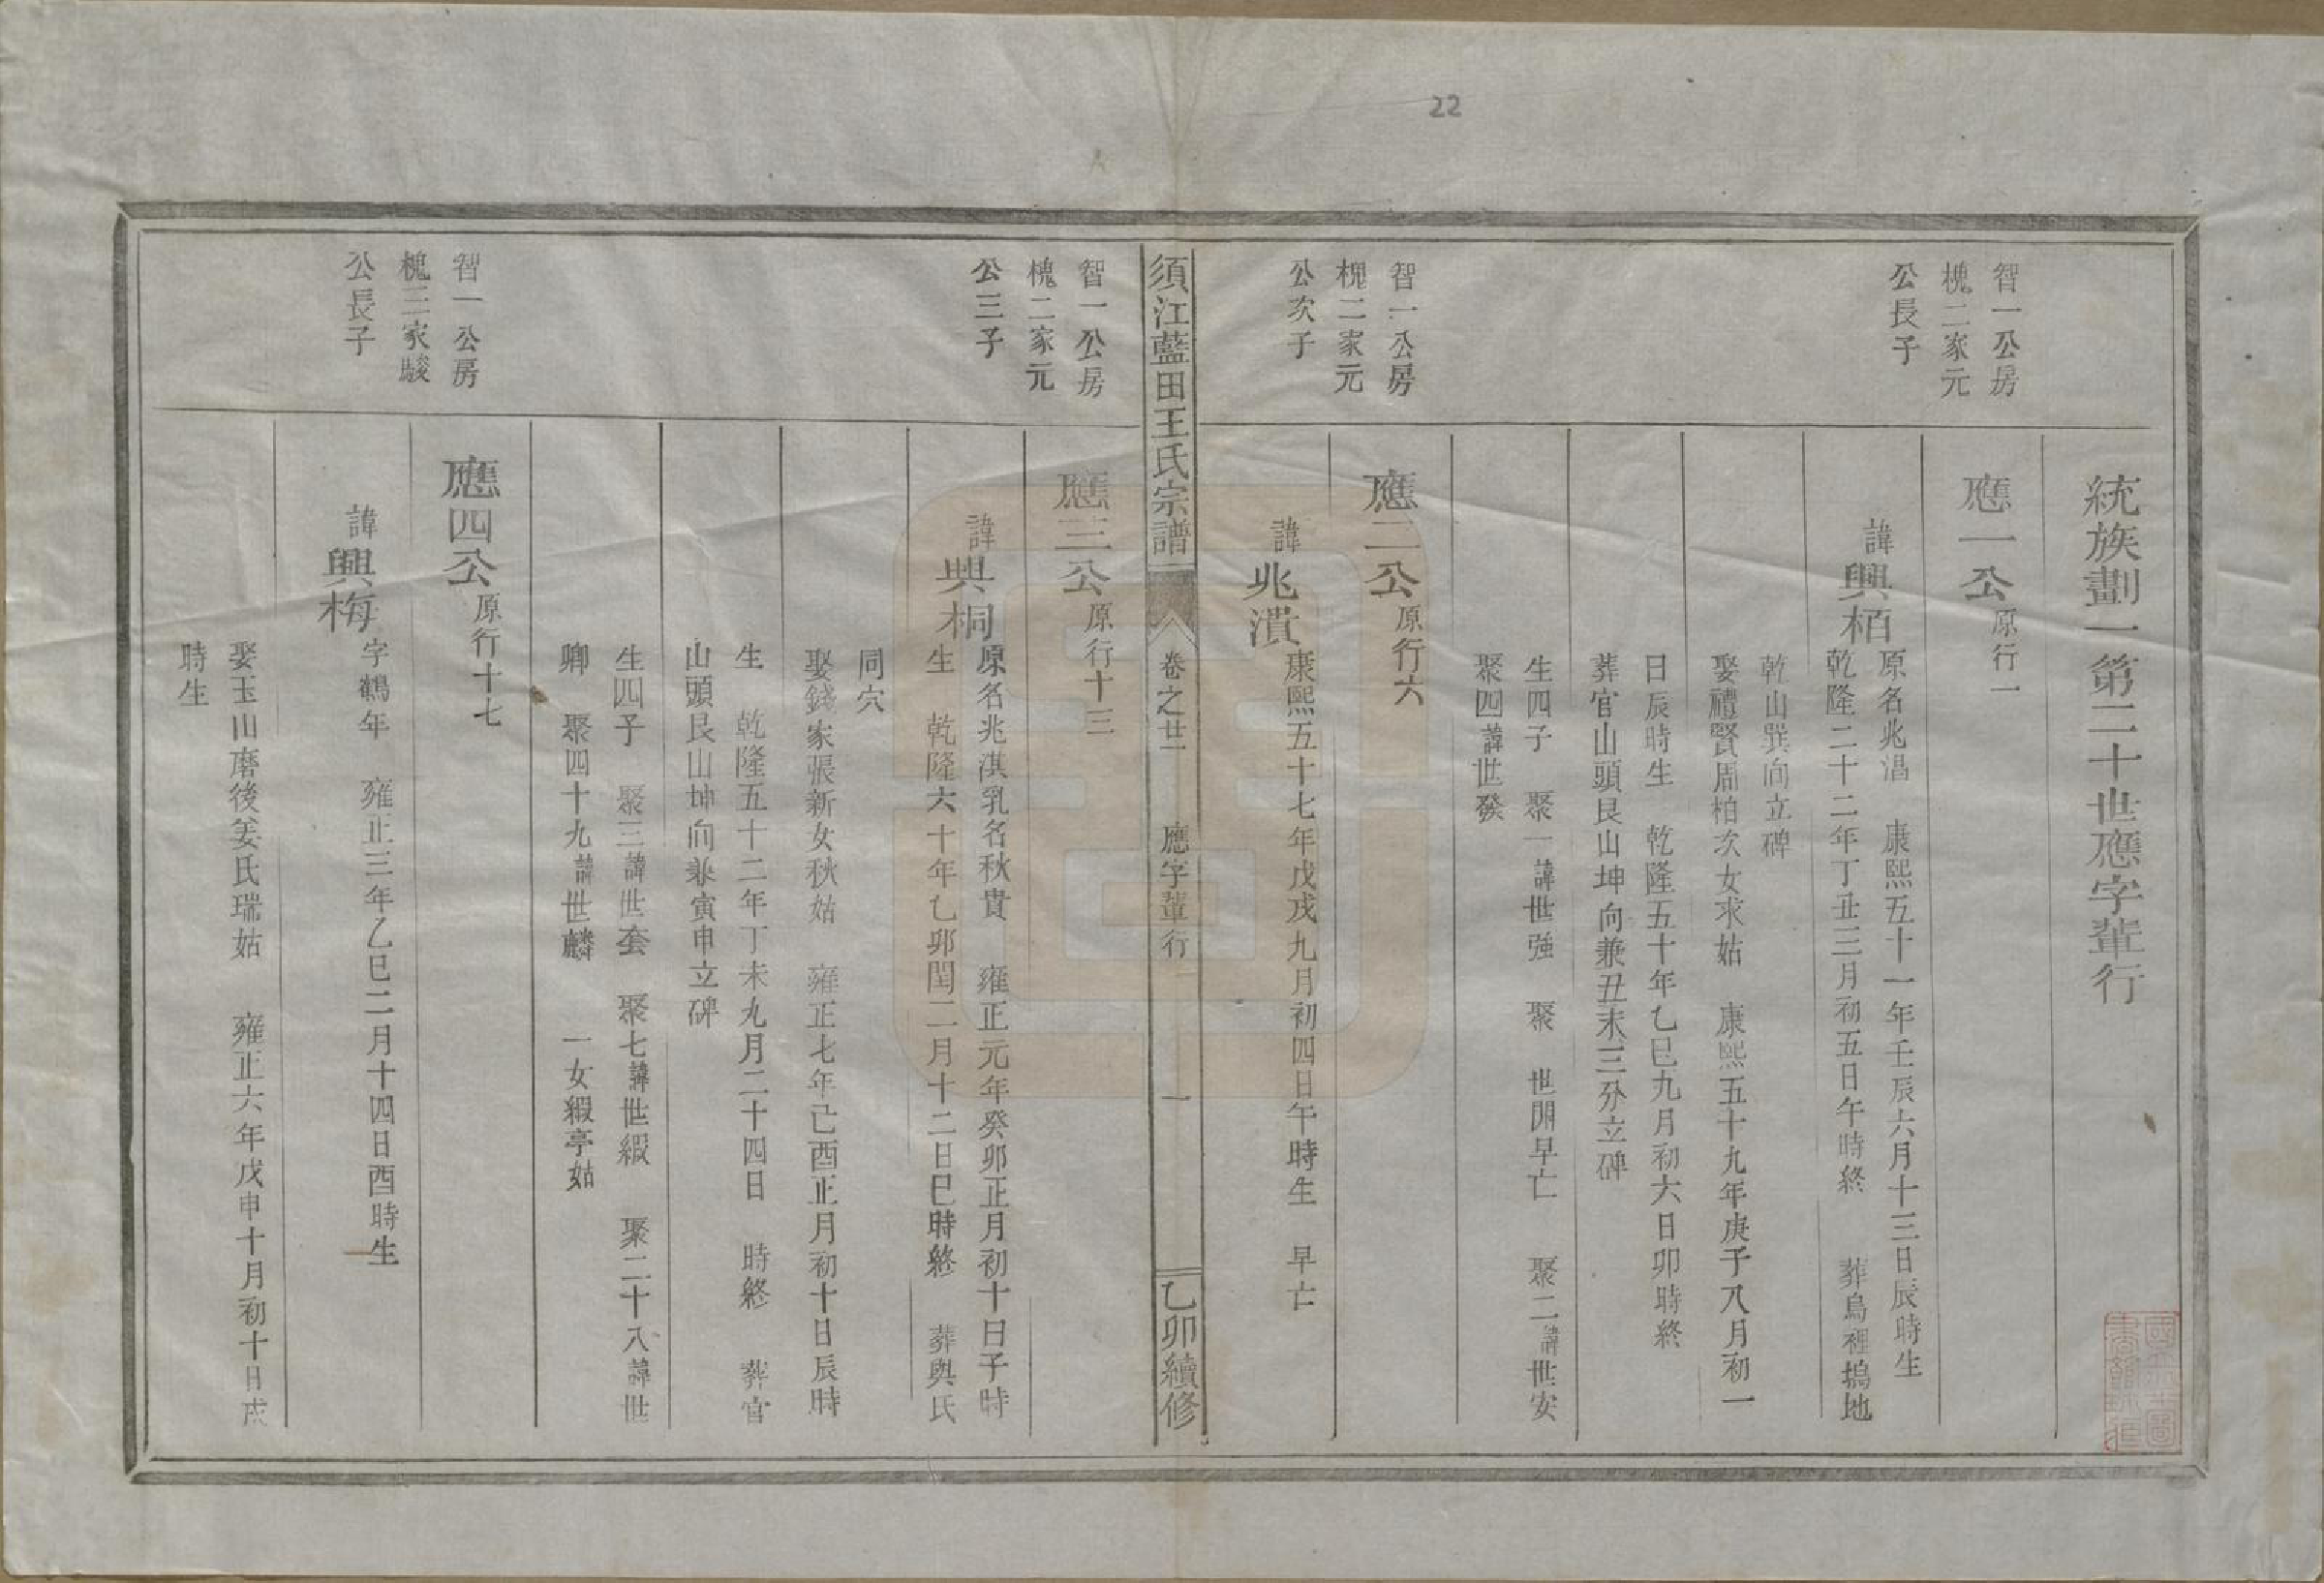 22
統族劃一第二十世應字輩行
智一公房
槐二家元
公長子
應一公原行一
諱興栢
原名兆淐 康熙五十一年壬辰六月十三日辰時生
乾隆二十二年丁丑三月初五日午時終 葬烏裡塢地
乾山巽向立碑
娶禮賢周柏次女求姑 康熙五十九年庚子八月初一
日辰時生 乾隆五十年乙巳九月初六日卯時終
葬官山頭艮山坤向兼丑未三分立碑
生四子 聚一諱世強 聚 世閑早亡 聚二諱世安
聚四諱世發
智一公房
槐二家元
公次子
應二公原行六
諱兆濆
康熙五十七年戊戌九月初四日午時生 早亡
須江藍田王氏宗譜 卷之廿一 應字輩行 一 乙卯續修
智一公房
槐二家元
公三子
應三公原行十三
諱興桐
原名兆淇乳名秋貴 雍正元年癸卯正月初十日子時
生 乾隆六十年乙卯閏二月十二日巳時終 葬與氏
同穴
娶錢家張新女秋姑 雍正七年己酉正月初十日辰時
生 乾隆五十二年丁未九月二十四日 時終 葬官
山頭艮山坤向兼寅申立碑
生四子 聚三諱世套 聚七諱世緞 聚二十八諱世
卿 聚四十九諱世麟 一女緞亭姑
智一公房
槐三家駿
公長子
應四公原行十七
諱興梅
字鶴年 雍正三年乙巳二月十四日酉時生
娶玉山磨後姜氏瑞姑 雍正六年戊申十月初十日戌
時生